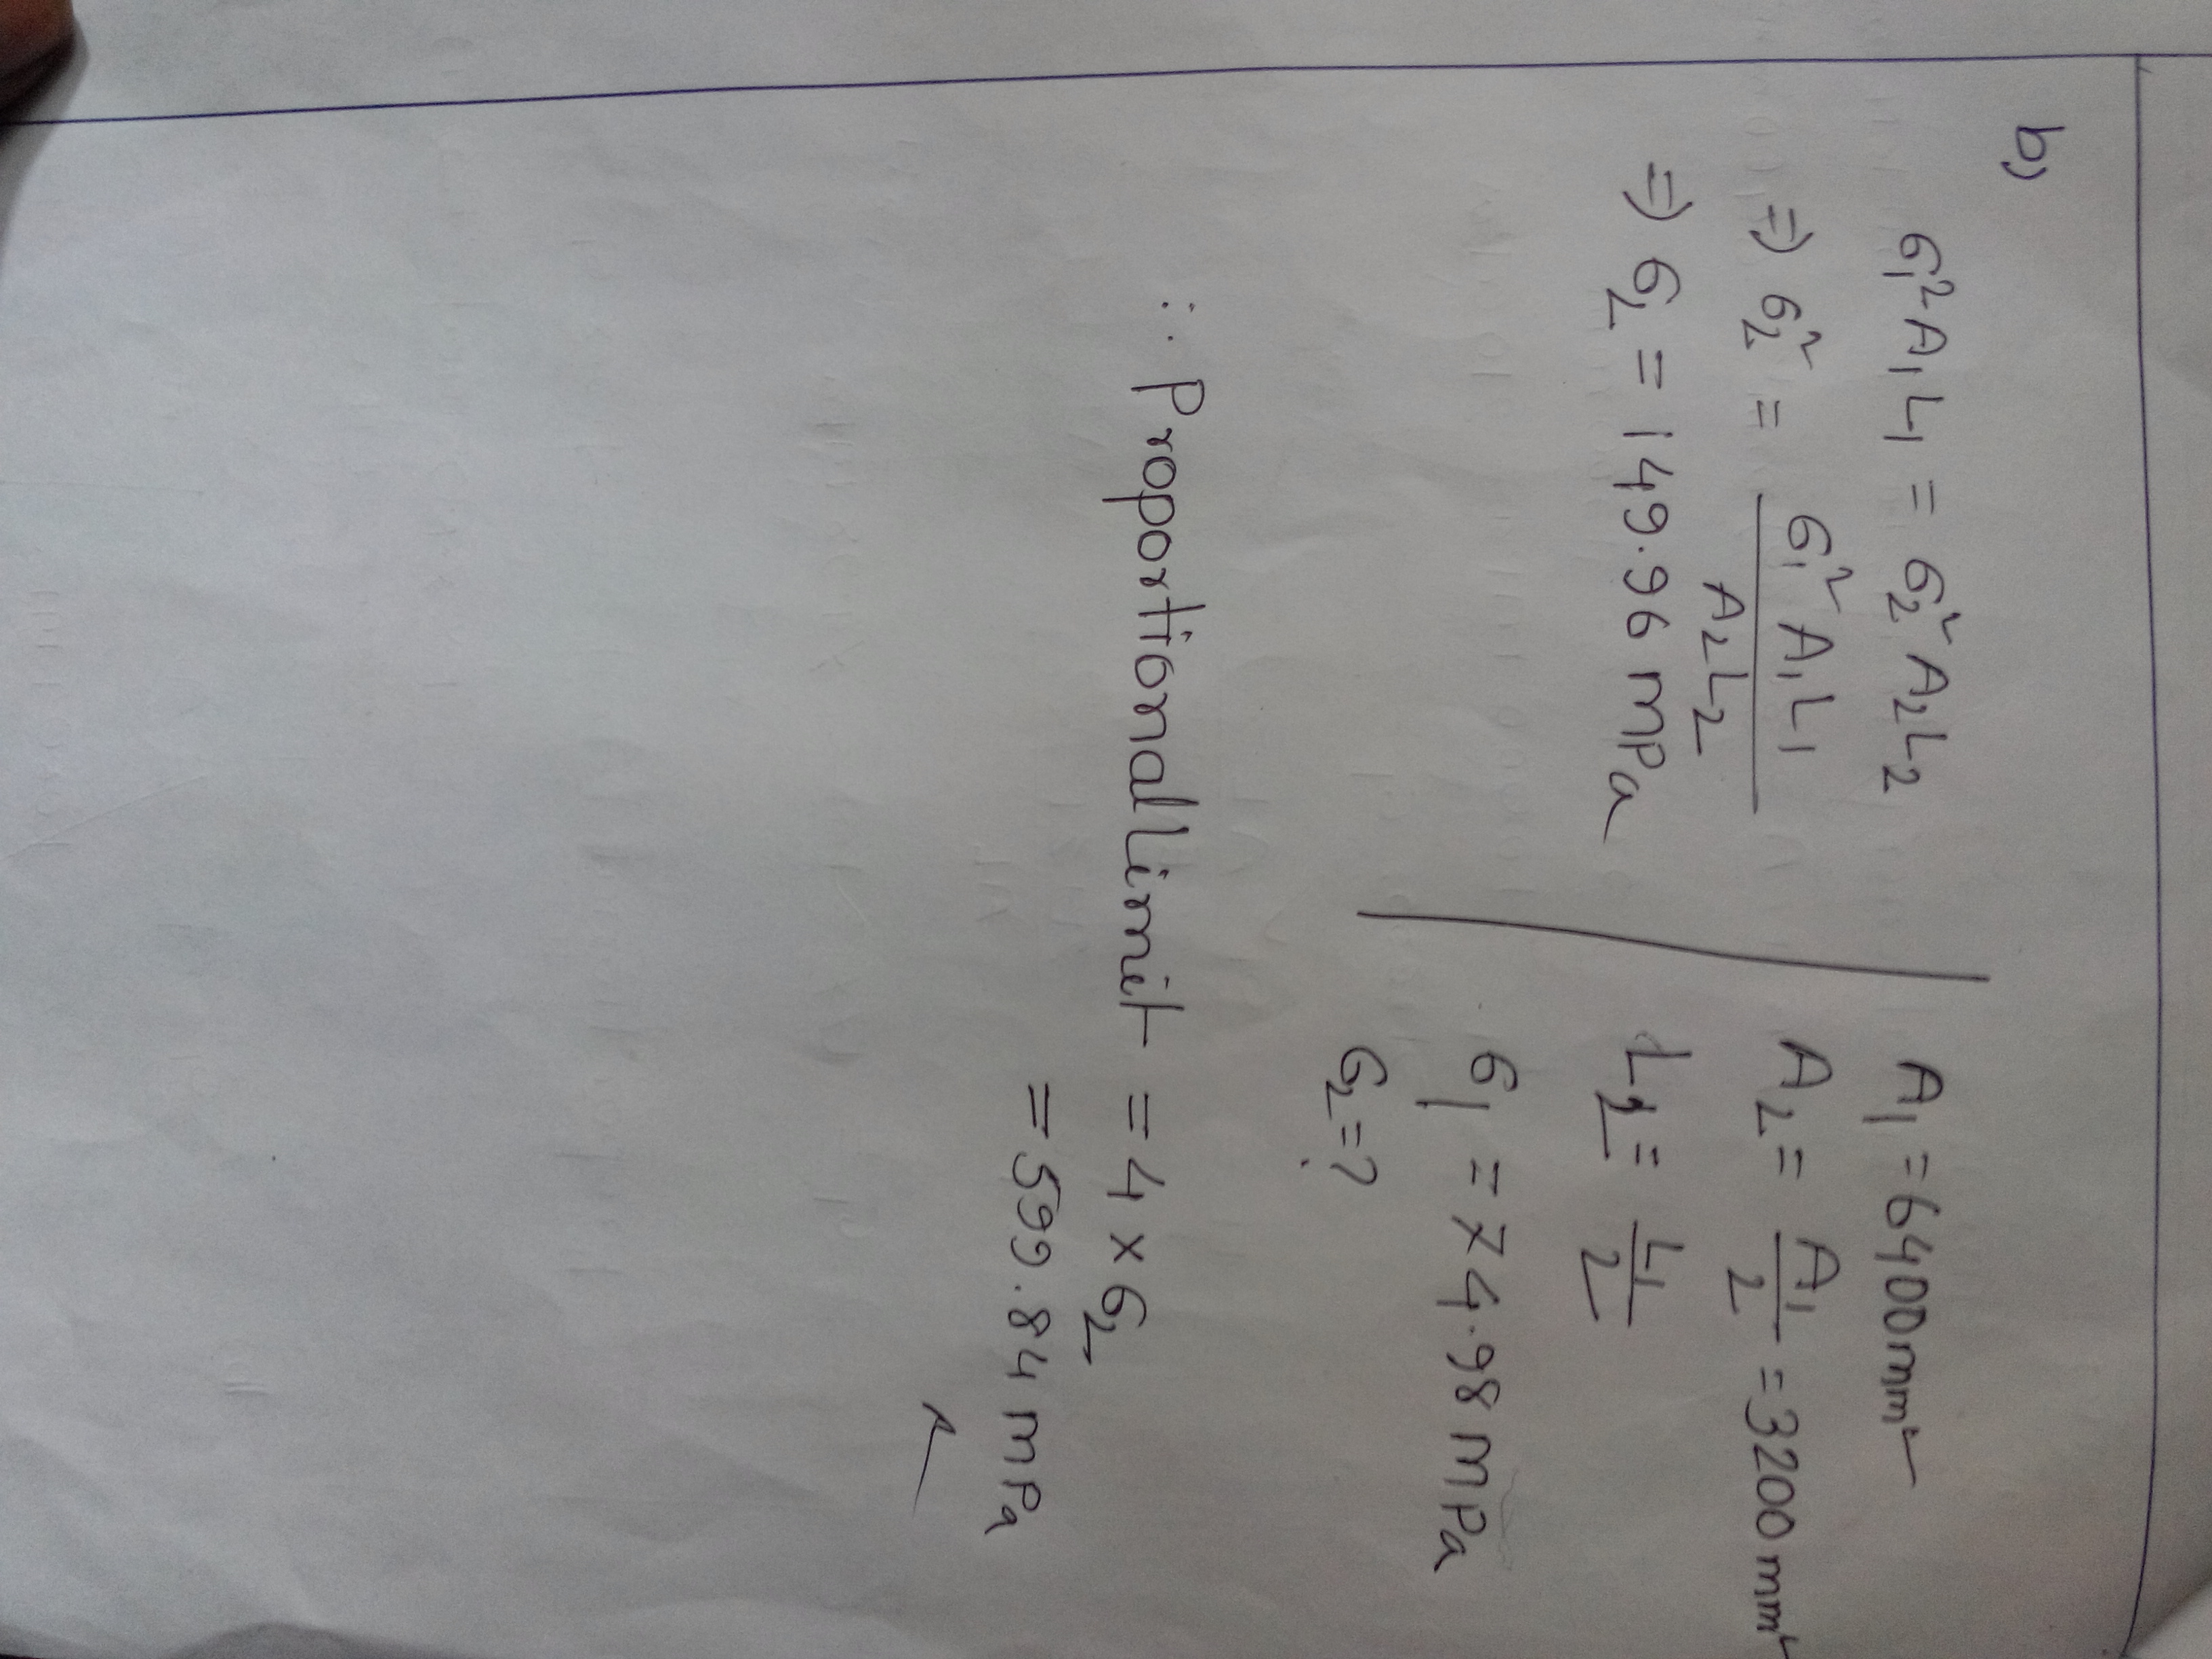 b)
6₁²A₁L₁ = 6₂²A₂L₂
⇒ 6₂² = 6₁²A₁L₁ / A₂L₂
⇒ 6₂ = 149.96 mPa
A₁ = 6400mm²
A₂ = A₁/2 = 3200mm²
L₂ = L₁/2
6₁ = 74.98 mPa
6₂ = ?
∴ Proportional Limit = 4 × 6₂
= 599.84 mPa